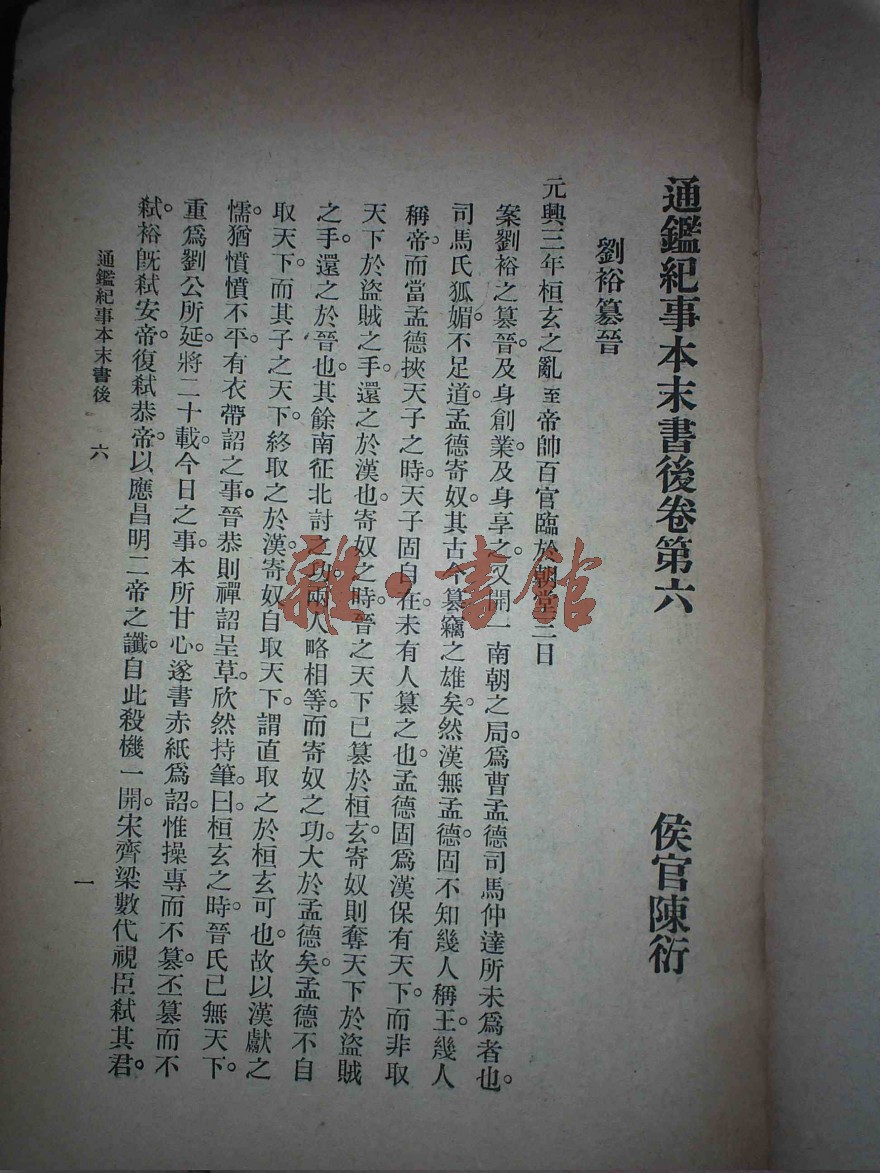 通鑑紀事本末書後卷第六
侯官陳衍
劉裕篡晉
元興三年桓玄之亂至帝帥百官臨於朝堂三日
案劉裕之篡晉。及身創業。及身享之。又開一南朝之局。爲曹孟德司馬仲達所未爲者也。
司馬氏狐媚。不足道。孟德寄奴。其古今篡竊之雄矣。然漢無孟德。固不知幾人稱王。幾人
稱帝。而當孟德挾天子之時。天子固自在。未有人篡之也。孟德固爲漢保有天下。而非取
天下於盜賊之手。還之於漢也。寄奴之時。晉之天下已篡於桓玄。寄奴則奪天下於盜賊
之手。還之於晉也。其餘南征北討之功。兩人略相等。而寄奴之功。大於孟德矣。孟德不自
取天下。而其子之天下。終取之於漢。寄奴自取天下。謂直取之於桓玄可也。故以漢獻之
懦。猶憤憤不平。有衣帶詔之事。晉恭則禪詔呈草。欣然持筆。曰。桓玄之時。晉氏已無天下。
重爲劉公所延。將二十載。今日之事。本所甘心。遂書赤紙爲詔。惟操專而不篡。丕篡而不
弒。裕旣弒安帝。復弒恭帝。以應昌明二帝之讖。自此殺機一開。宋齊梁數代視臣弒其君。
通鑑紀事本末書後 六
一
雜·書館